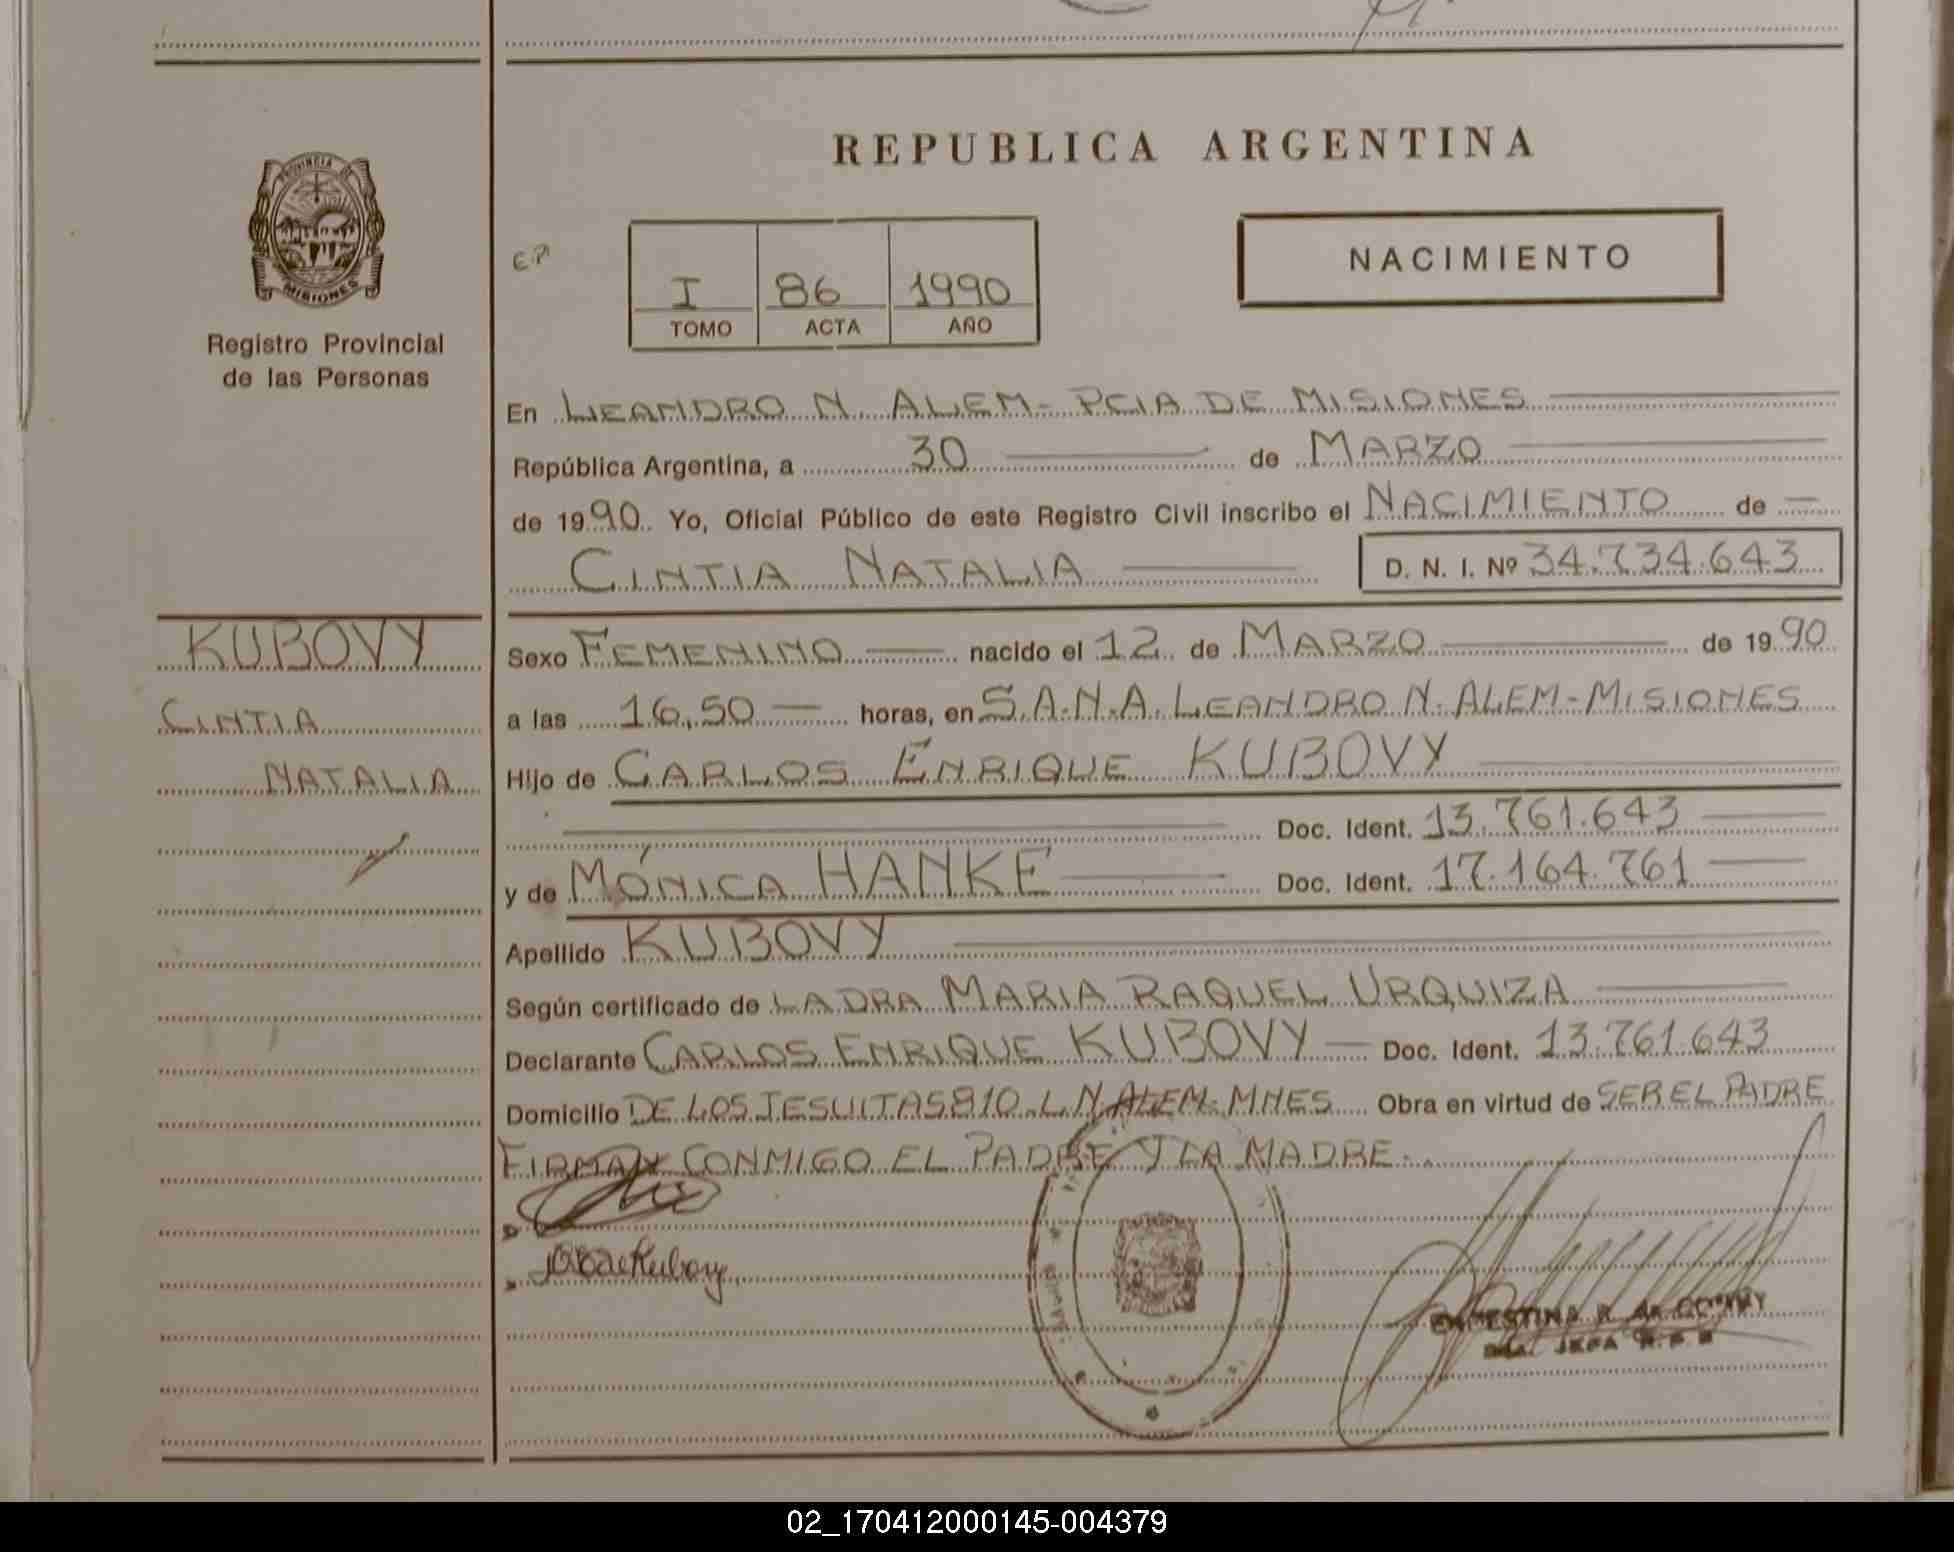 REPUBLICA ARGENTINA
PROVINCIA DE
MISIONES
Registro Provincial
de las Personas
E.P.
I 86 1990
TOMO ACTA AÑO
NACIMIENTO
En LEANDRO N. ALEM - PCIA DE MISIONES
República Argentina, a 30 de MARZO
de 1990. Yo, Oficial Público de este Registro Civil inscribo el NACIMIENTO de
CINTIA NATALIA D. N. I. Nº 34.734.643
KUBOVY
CINTIA
NATALIA
Sexo FEMENINO nacido el 12 de MARZO de 1990
a las 16,50 horas, en S.A.N.A. LEANDRO N. ALEM - MISIONES
Hijo de CARLOS ENRIQUE KUBOVY
Doc. Ident. 13.761.643
y de MÓNICA HANKE Doc. Ident. 17.164.761
Apellido KUBOVY
Según certificado de LA DRA MARIA RAQUEL URQUIZA
Declarante CARLOS ENRIQUE KUBOVY Doc. Ident. 13.761.643
Domicilio DE LOS JESUITAS 810. L.N. ALEM - MNES Obra en virtud de SER EL PADRE
FIRMAN CONMIGO EL PADRE Y LA MADRE.
JEFA
02_170412000145-004379